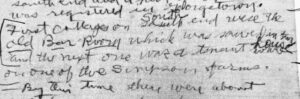 was registered in Georgetown.
First Cottages on South end were the
old Bar Room which was saved in
and the next one was a tenant house
on one of the Simpson farms.
By this time there were about